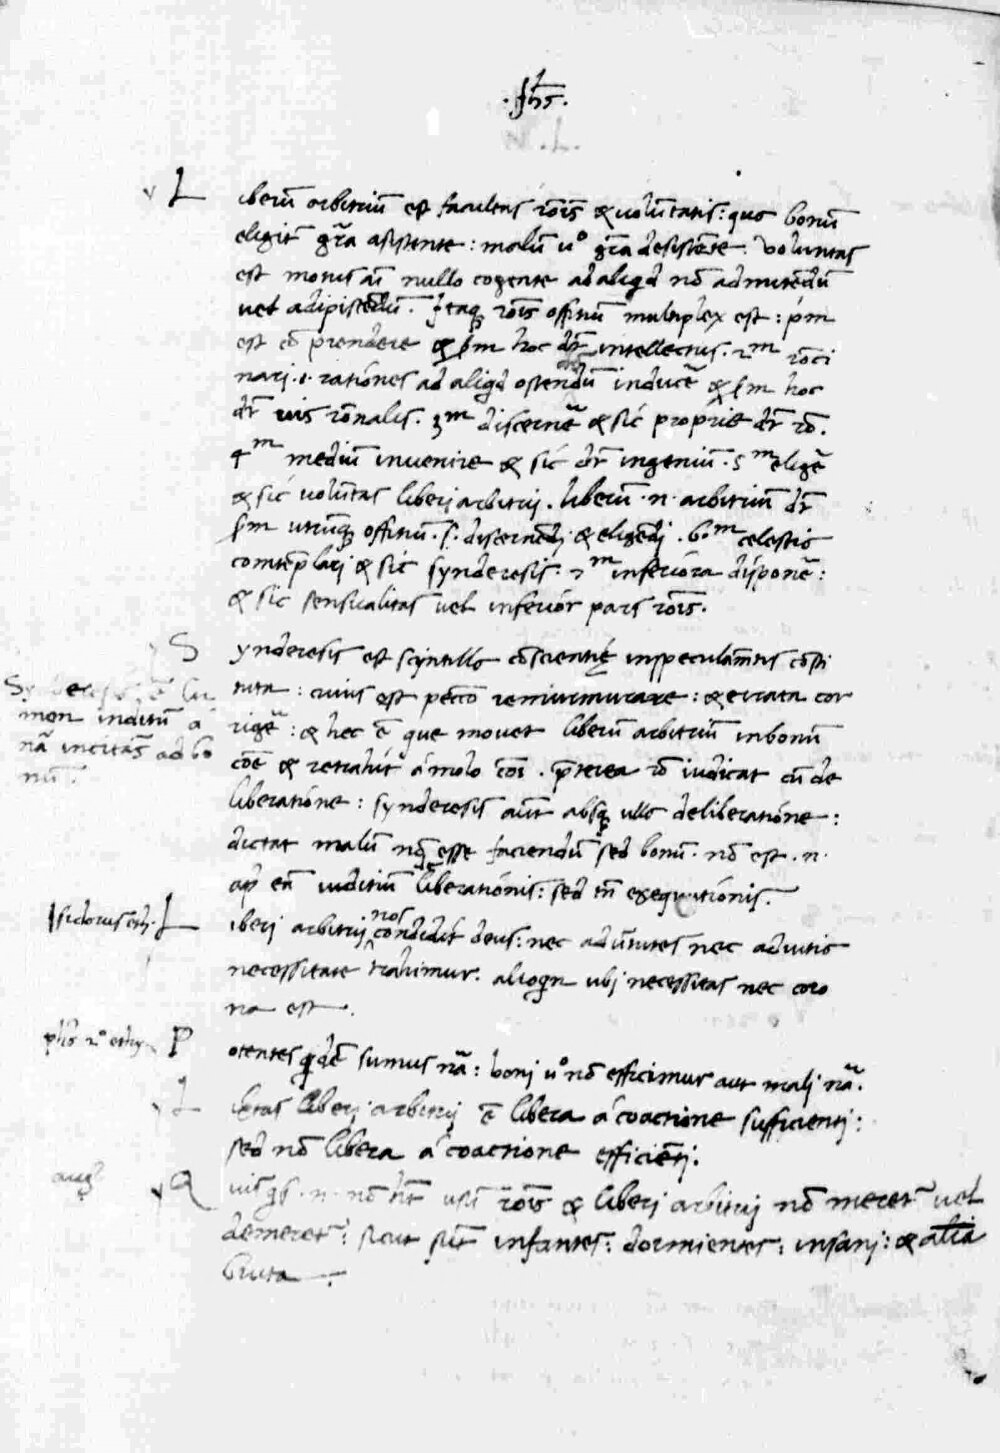 .Jhs.
L iberū arbitriū est facultas rōis & voluntatis: quo bonū
eligit grā asistente: malū uo grā desistēte. Voluntas
est motus aī nullo cogente ad aliqd nō admittēdū
vel adipiscēdū. Itaq rōis offitiū multiplex est: pm
est cōprendere & sm hoc dr intellectus. 2m rōci
nari .i. rationes ad aliqd ostendēdū inducē & sm hoc
dr uis rōnalis. 3m discernē & sic proprie dr rō.
4m mediū invenire & sic dr ingeniū. 5m eligē
& sic voluntas liberj arbitrij. liberū .n. arbitriū dr
sm utrūq offitiū .s. discernēdj & eligēdj. 6m celestia
contēplarj & sic synderesis. 7m inferiora dispone:
& sic sensualitas vel inferior pars rōis.
S ynderesis est scintilla cōscientię in speculamtis cōsti
tuta: cuius est pctō remurmurare: & errata cor
rigē: & hec ē que movet liberū arbitriū in bonū
cōe & retrahit a malo cōi. preterea rō iudicat cū de
liberatione: synderesis aūt absq ulla deliberatione:
dictat malū nōq esse faciendū sed bonū. nō est .n.
ap eā iuditiū liberationis: sed tm exequutionis.
Synderesis ē lu
men inditū a
nā incitās ad bo
nū.
Isidorus eth.
L iberi arbitrij nos condidit deus: nec ad virtutes nec ad vitia
necessitate trahimur. alioqn ubj necessitas nec coro
na est.
phs 2o ethy
P otentes qdē sumus nā: bonj uo nō efficimur aut malj nā.
L ibtas liberj arbitrij ē libera a coactione sufficientj:
sed nō libera a coactione efficiētj.
aug
Q uis .n. nō hēt usū rōis & liberj arbitrij nō meret vel
demeret: sicut sūt infantes: dormientes: insanj: & alia
bruta.